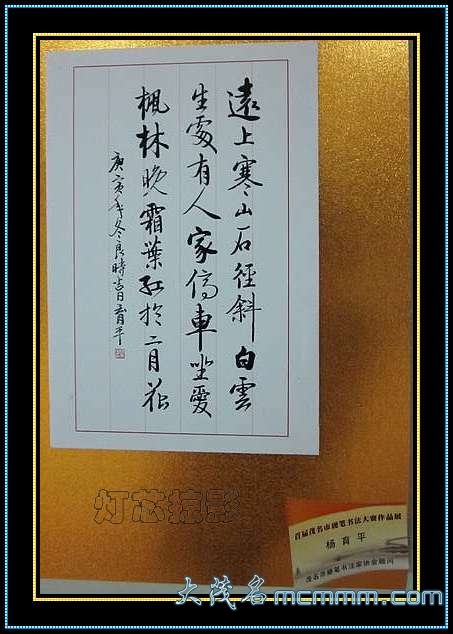 遠上寒山石徑斜白雲
生處有人家停車坐愛
楓林晚霜葉紅於二月花
庚寅年冬良時吉日育平
灯芯掠影
首届茂名市硬笔书法大赛作品展
杨育平
茂名市硬笔书法家协会顾问
大茂名mcmmm.com